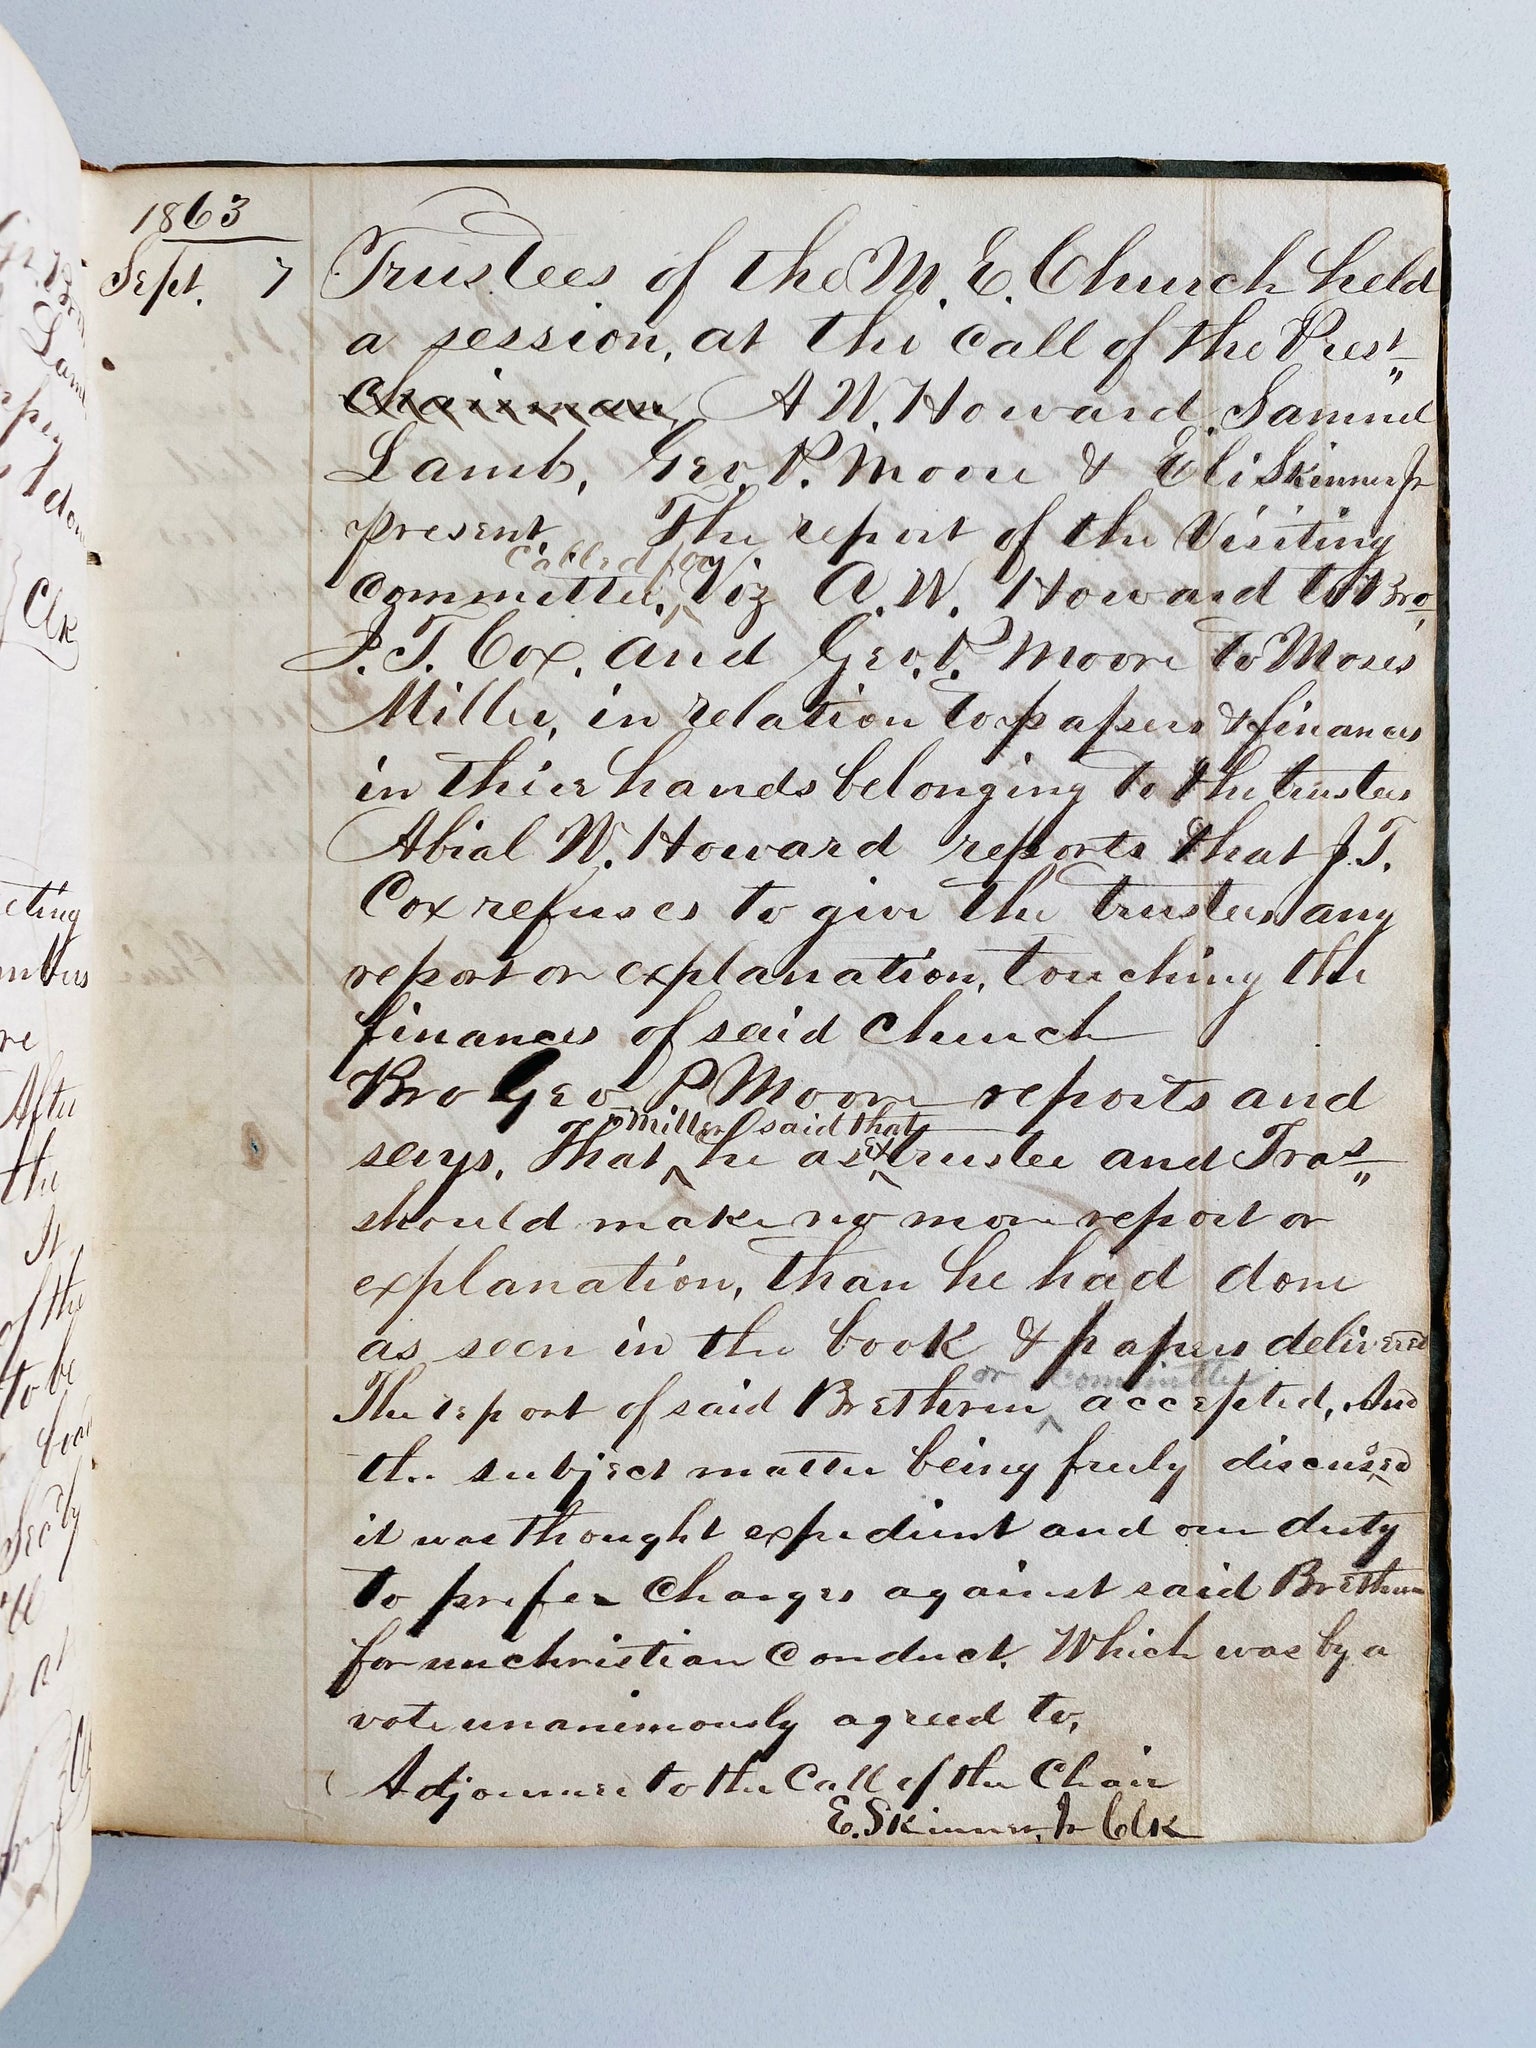 1863
Sept. 7 Trustees of the M. E. Church held
a session, at the call of the Prest
Chairman, A W. Howard, Samuel
Lamb, Geo. P. Moore & Eli Skinner Jr
present. The report of the Visiting
called for
committee, Viz A. W. Howard to Bro
J. T. Cox. and Geo. P. Moore to Moses
Miller, in relation to papers & finances
in thier hands belonging to the trustees
Abial W. Howard reports that J. T.
Cox refuses to give the trustees any
report or explanation, touching the
finances of said Church
Bro Geo P Moore reports and
Miller said that
says, That he as Ex trustee and Tras
should make no more report or
explanation, than he had done
as seen in the book & papers delivered
or committee
The report of said Brethren accepted, And
the subject matter being freely discussed
it was thought expedient and our duty
to prefer Charges against said Brethren
for unchristian Conduct. Which was by a
vote unanimously agreed to,
Adjourned to the Call of the Chair
E. Skinner, Jr Clk
Clk
eting
After
the
It
of the
to be